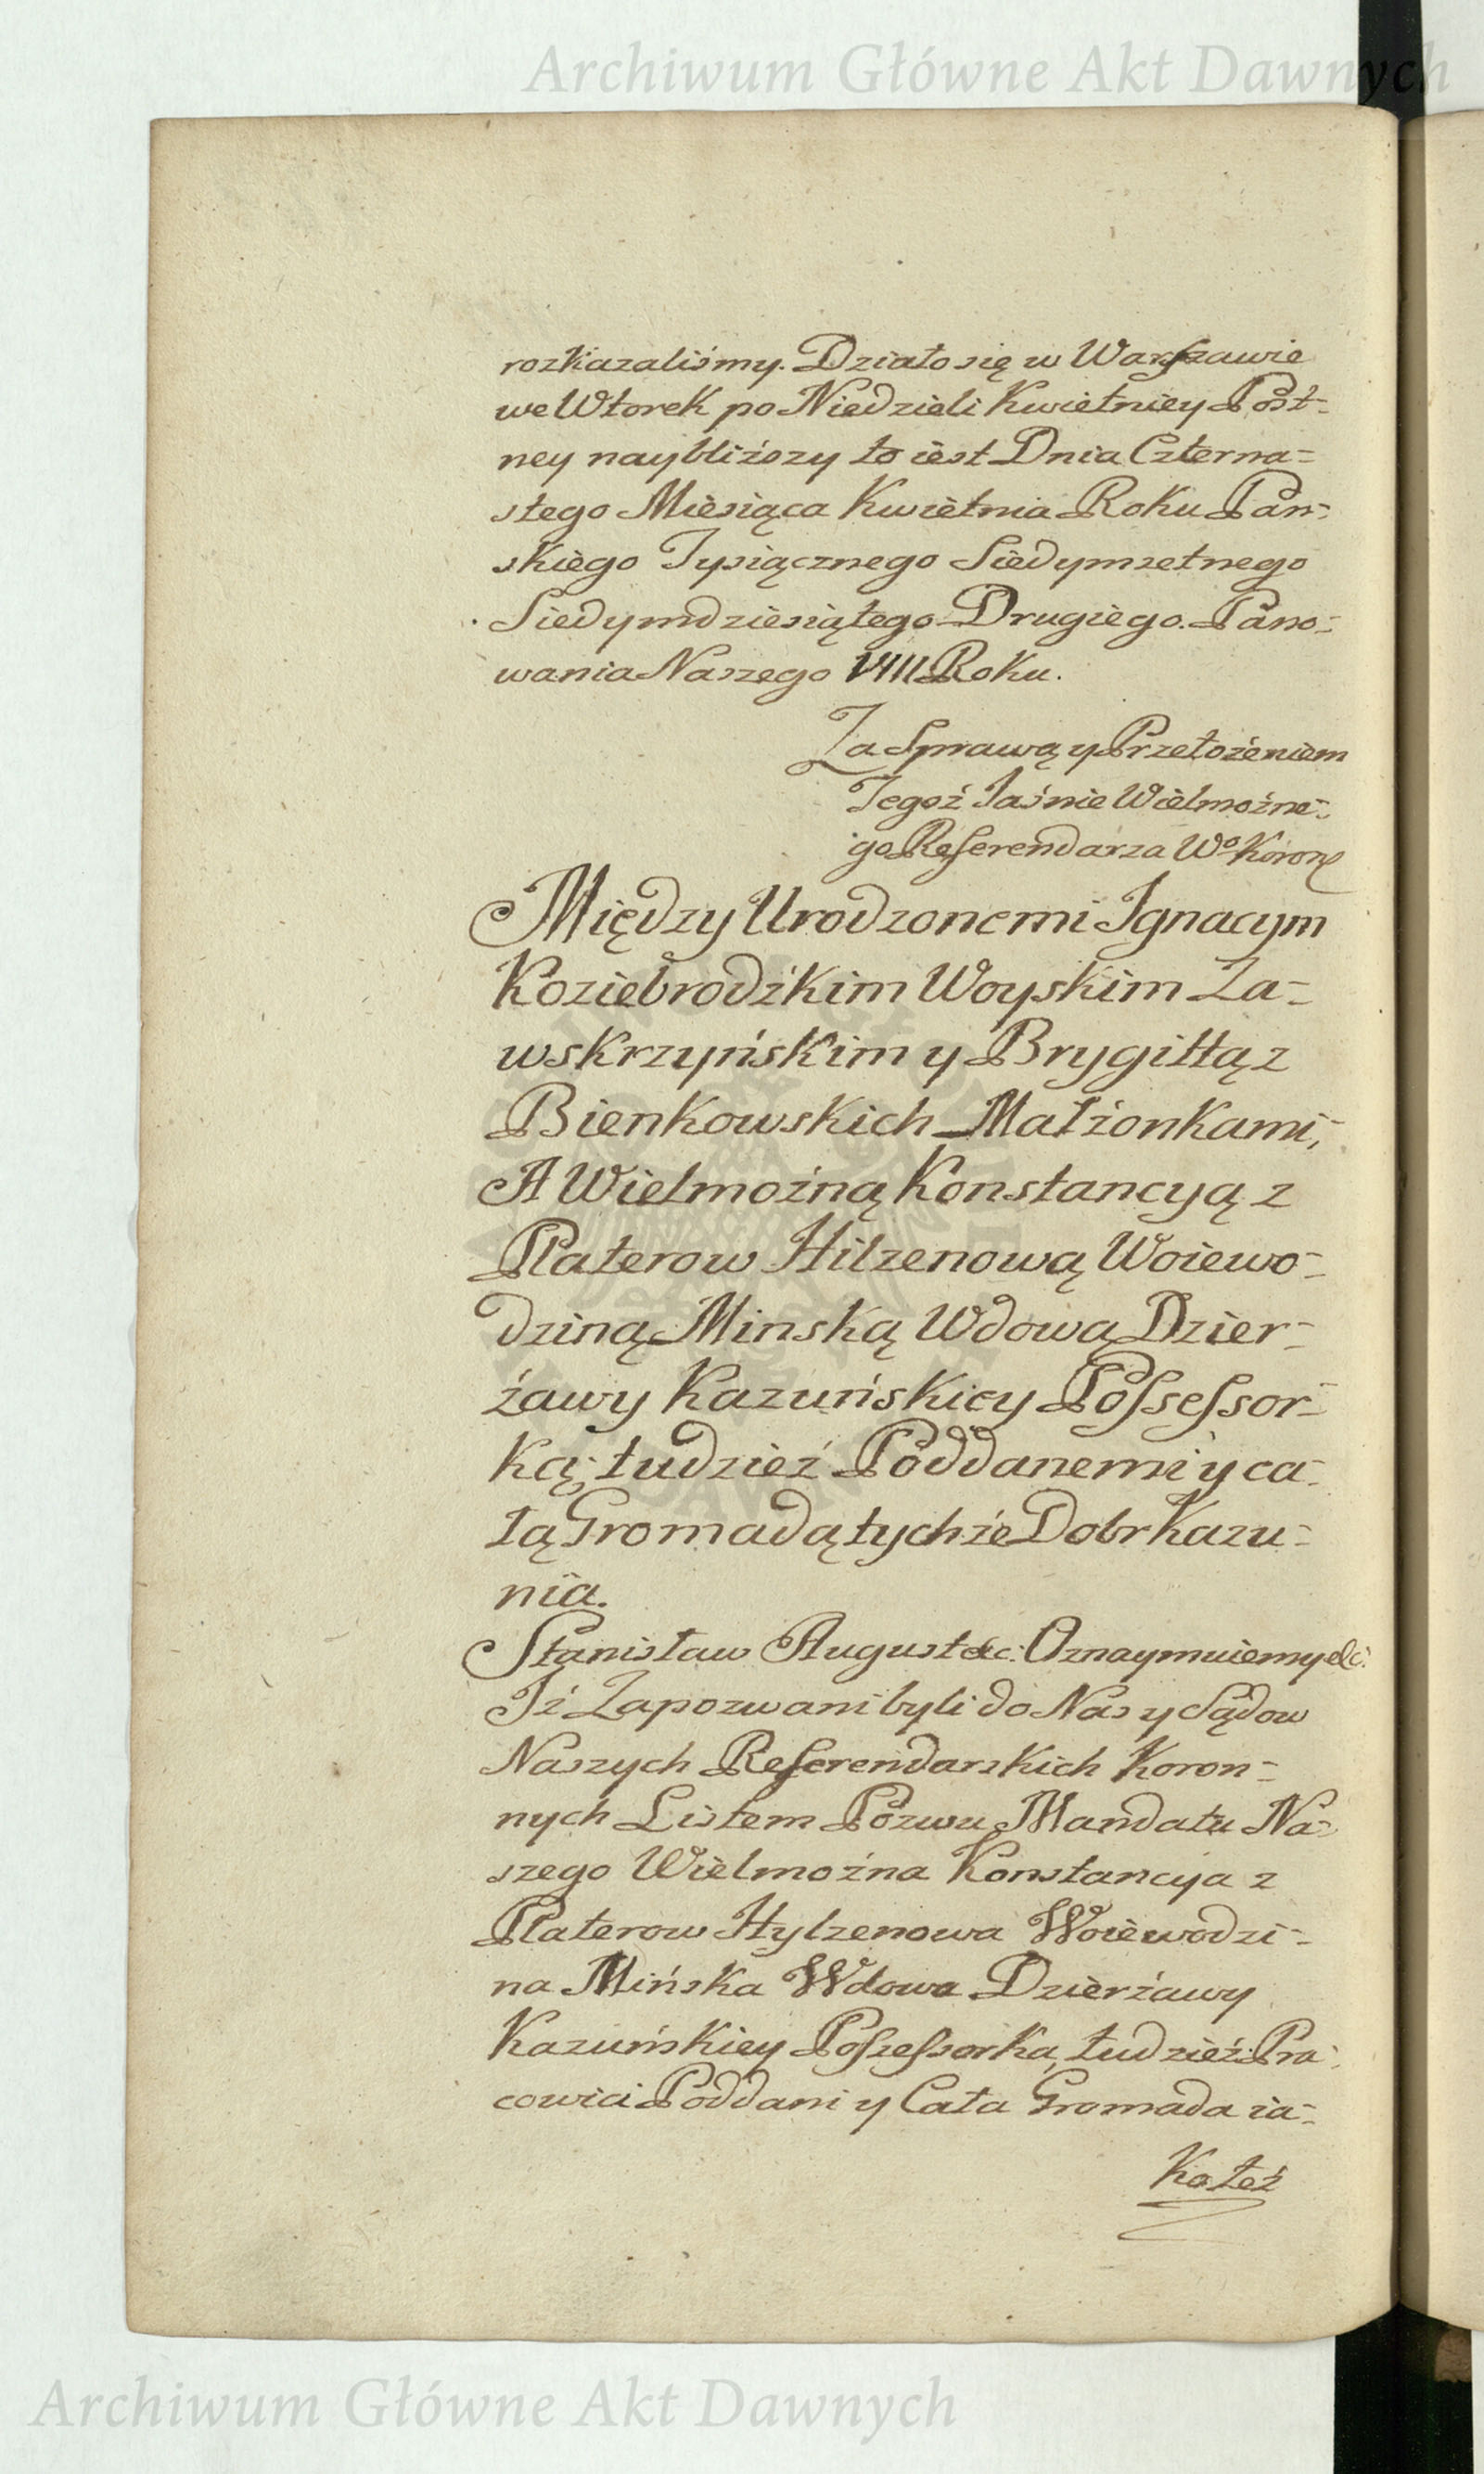 Archiwum Główne Akt Dawnych
rozkazaliśmy. Działo się w Warszawie
we Wtorek po Niedzieli Kwietniey Post-
ney naybliższy to iest Dnia Czterna=
stego Miesiąca Kwietnia Roku Pan-
skiego Tysiącznego Siedymsetnego
Siedymdziesiątego Drugiego. Pano-
wania Naszego VIII Roku.
Za Sprawą y Przełożeniem
Tegoż Jaśnie Wielmożne-
go Referendarza Wo Koronⱥ
Między Urodzonemi Ignacym
Koziebrodzkim Woyskim Za-
wskrzyńskim y Brygittą z
Bienkowskich Małżonkami,
A Wielmożną Konstancyą z
Platerow Hilzenową Woiewo-
dziną Minską Wdową Dzier-
żawy Kazuńskiey Possessor-
ką, tudzież Poddanemi y ca-
łą Gromadą tychże Dobr Kazu-
nia.
Stanisław August &c: Oznaymuiemy &c:
Iż Zapozwani byli do Nas y Sądow
Naszych Referendarskich Koron-
nych Listem Pozwu Mandatu Na-
szego Wielmożna Konstancya z
Platerow Hylzenowa Woiewodzi-
na Mińska Wdowa Dzierżawy
Kazuńskiey Possessorka, tudzież Pra-
cowici Poddani y Cała Gromada ia-
ko też
Archiwum Główne Akt Dawnych